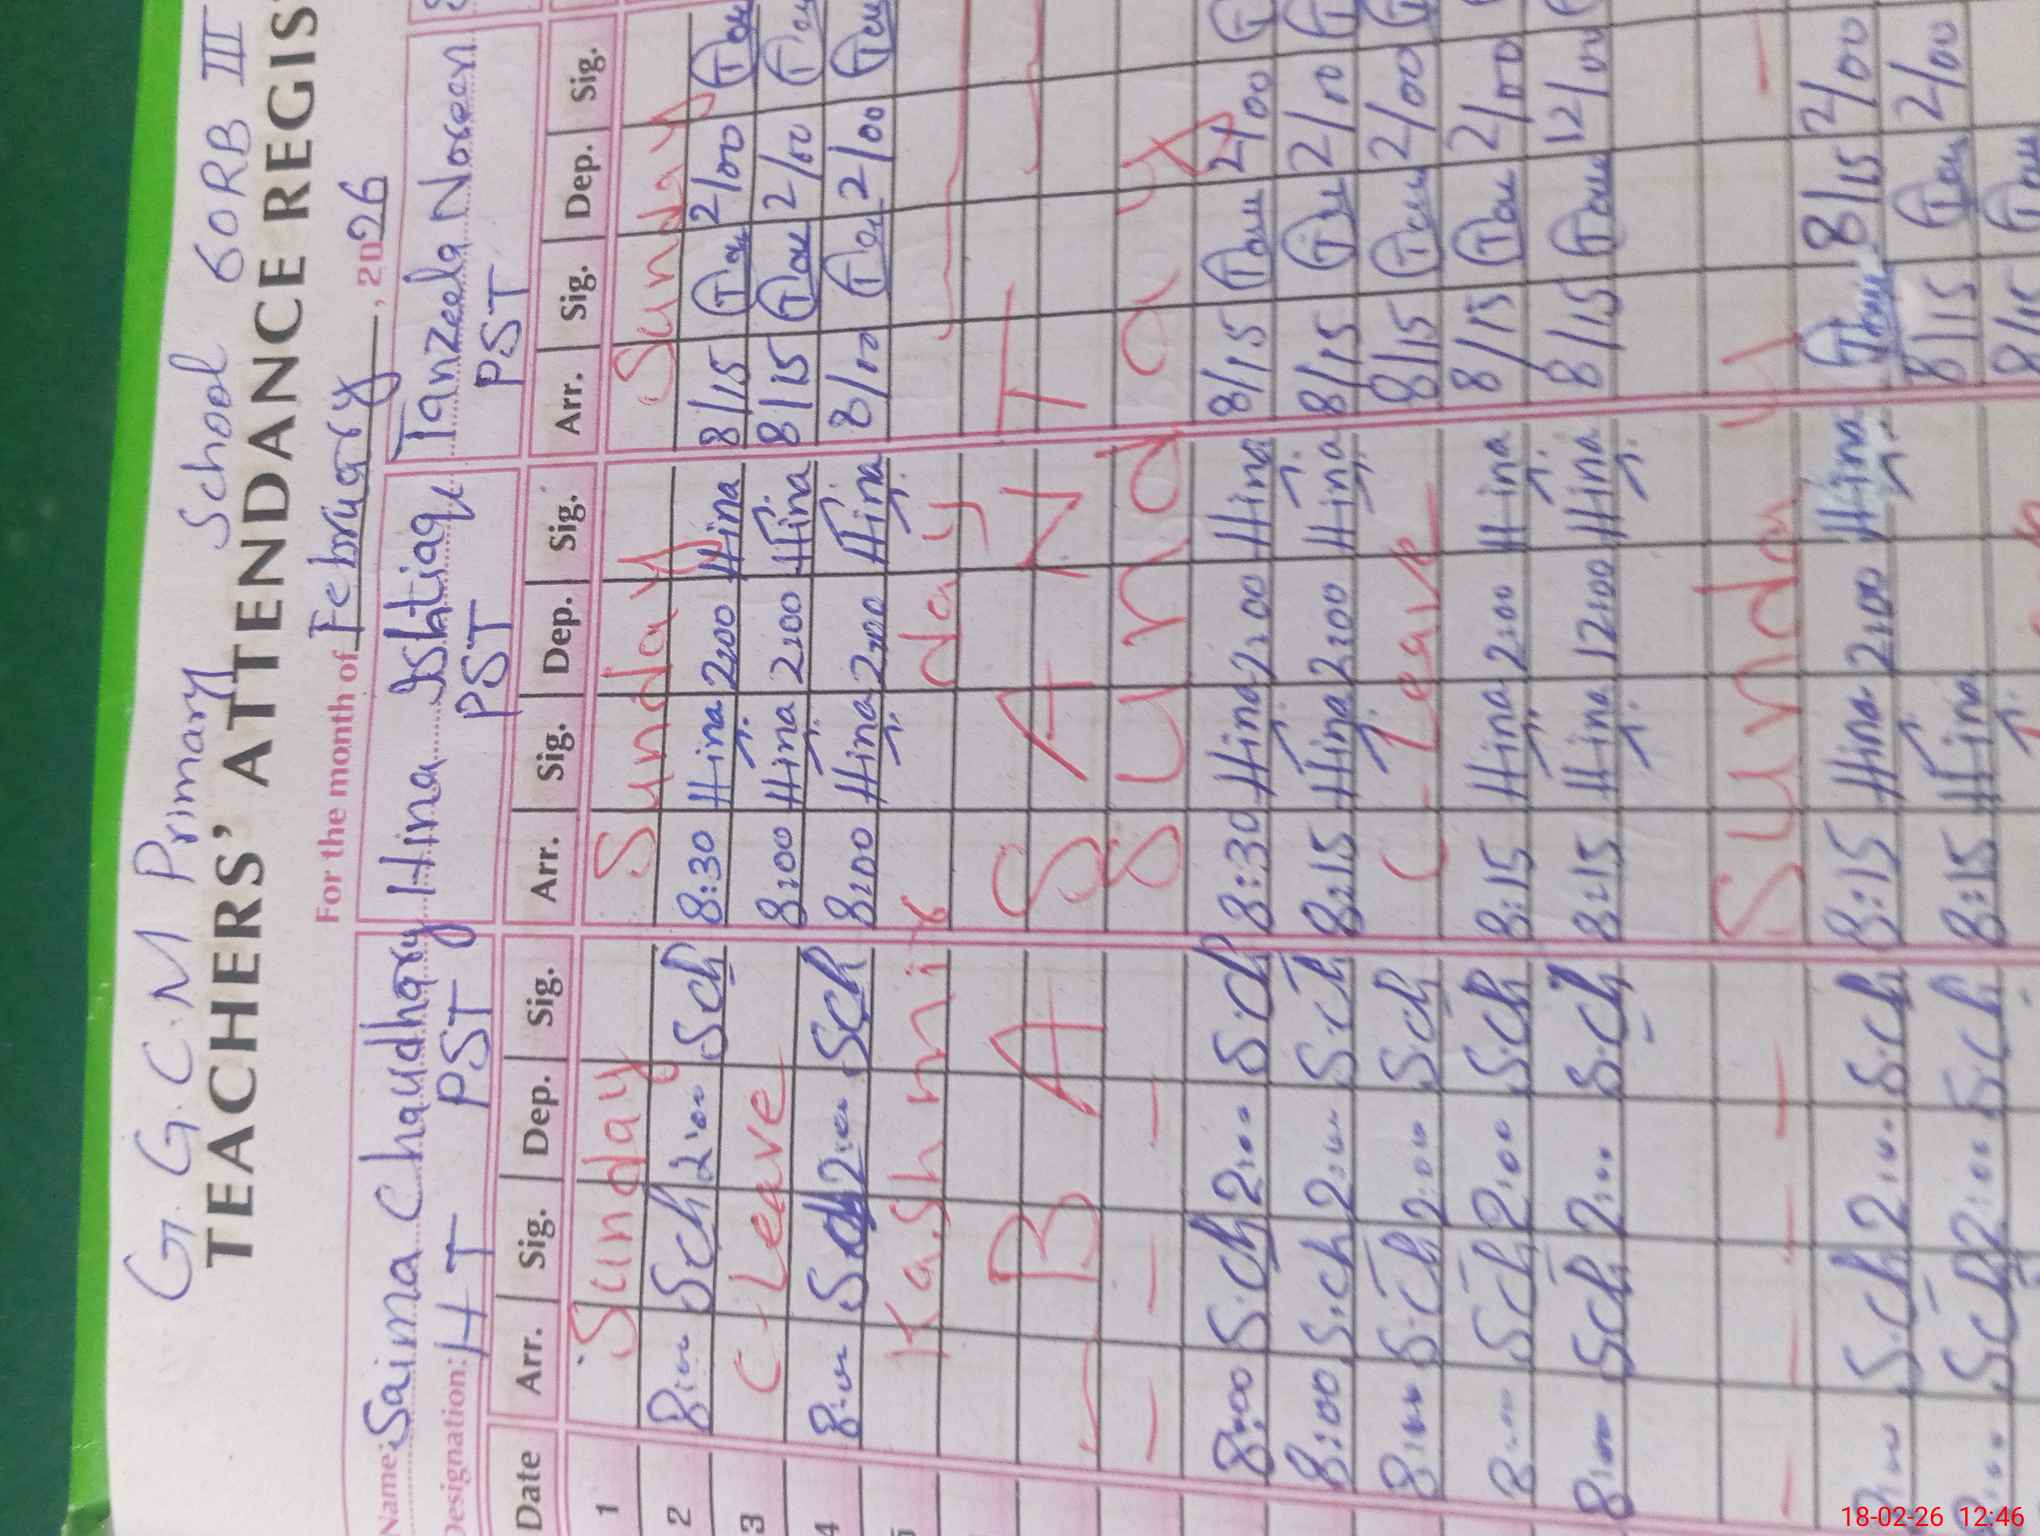 G.G.C.M Primary School 60RB III
TEACHERS' ATTENDANCE REGIS
For the month of February, 2026
Name: Saima Chaudhary Hina Ishtiaq Tanzeela Noreen
Designation: HT PST PST PST
Date Arr. Sig. Dep. Sig. Arr. Sig. Dep. Sig. Arr. Sig. Dep. Sig.
1 Sunday Sunday Sunday
2 8:00 Sch 2:00 Sch 8:30 Hina 2:00 Hina 8/15 2/00
3 C-Leave 8:00 Hina 2:00 Hina 8/15 2/00
4 8:00 Sch 2:00 Sch 8:00 Hina 2:00 Hina 8/00 2/00
Kashmir day
B A S A N T
Sunday
8:00 S.Ch 2:00 S.Ch 8:30 Hina 2:00 Hina 8/15 2/00
8:00 S.Ch 2:00 S.Ch 8:15 Hina 2:00 Hina 8/15 2/00
8:00 S.Ch 2:00 S.Ch C-Leave 8/15 2/00
8:00 S.Ch 2:00 S.Ch 8:15 Hina 2:00 Hina 8/15 2/00
8:00 Sch 2:00 S.Ch 8:15 Hina 12:00 Hina 8/15 12/00
Sunday
S.Ch 2:00 S.Ch 8:15 Hina 2:00 Hina 8/15 2/00
Sch 2:00 S.Ch 8:15 Hina 8/15 2/00
8/15
18-02-26 12:46